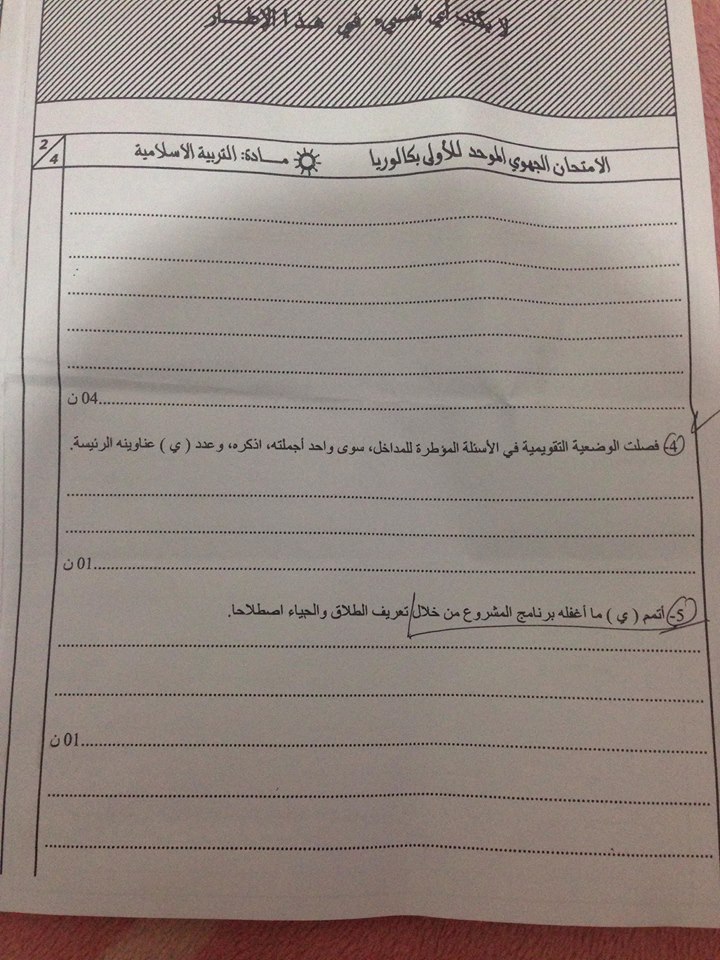 لا يكتب أي شيء في هذا الإطار
الامتحان الجهوي الموحد للأولى بكالوريا مادة: التربية الاسلامية 2/4
04 ن
4- فصلت الوضعية التقويمية في الأسئلة المؤطرة للمداخل، سوى واحد أجملته، اذكره، وعدد ( ي ) عناوينه الرئيسة.
01 ن
5- أتمم ( ي ) ما أغفله برنامج المشروع من خلال تعريف الطلاق والحياء اصطلاحا.
01 ن